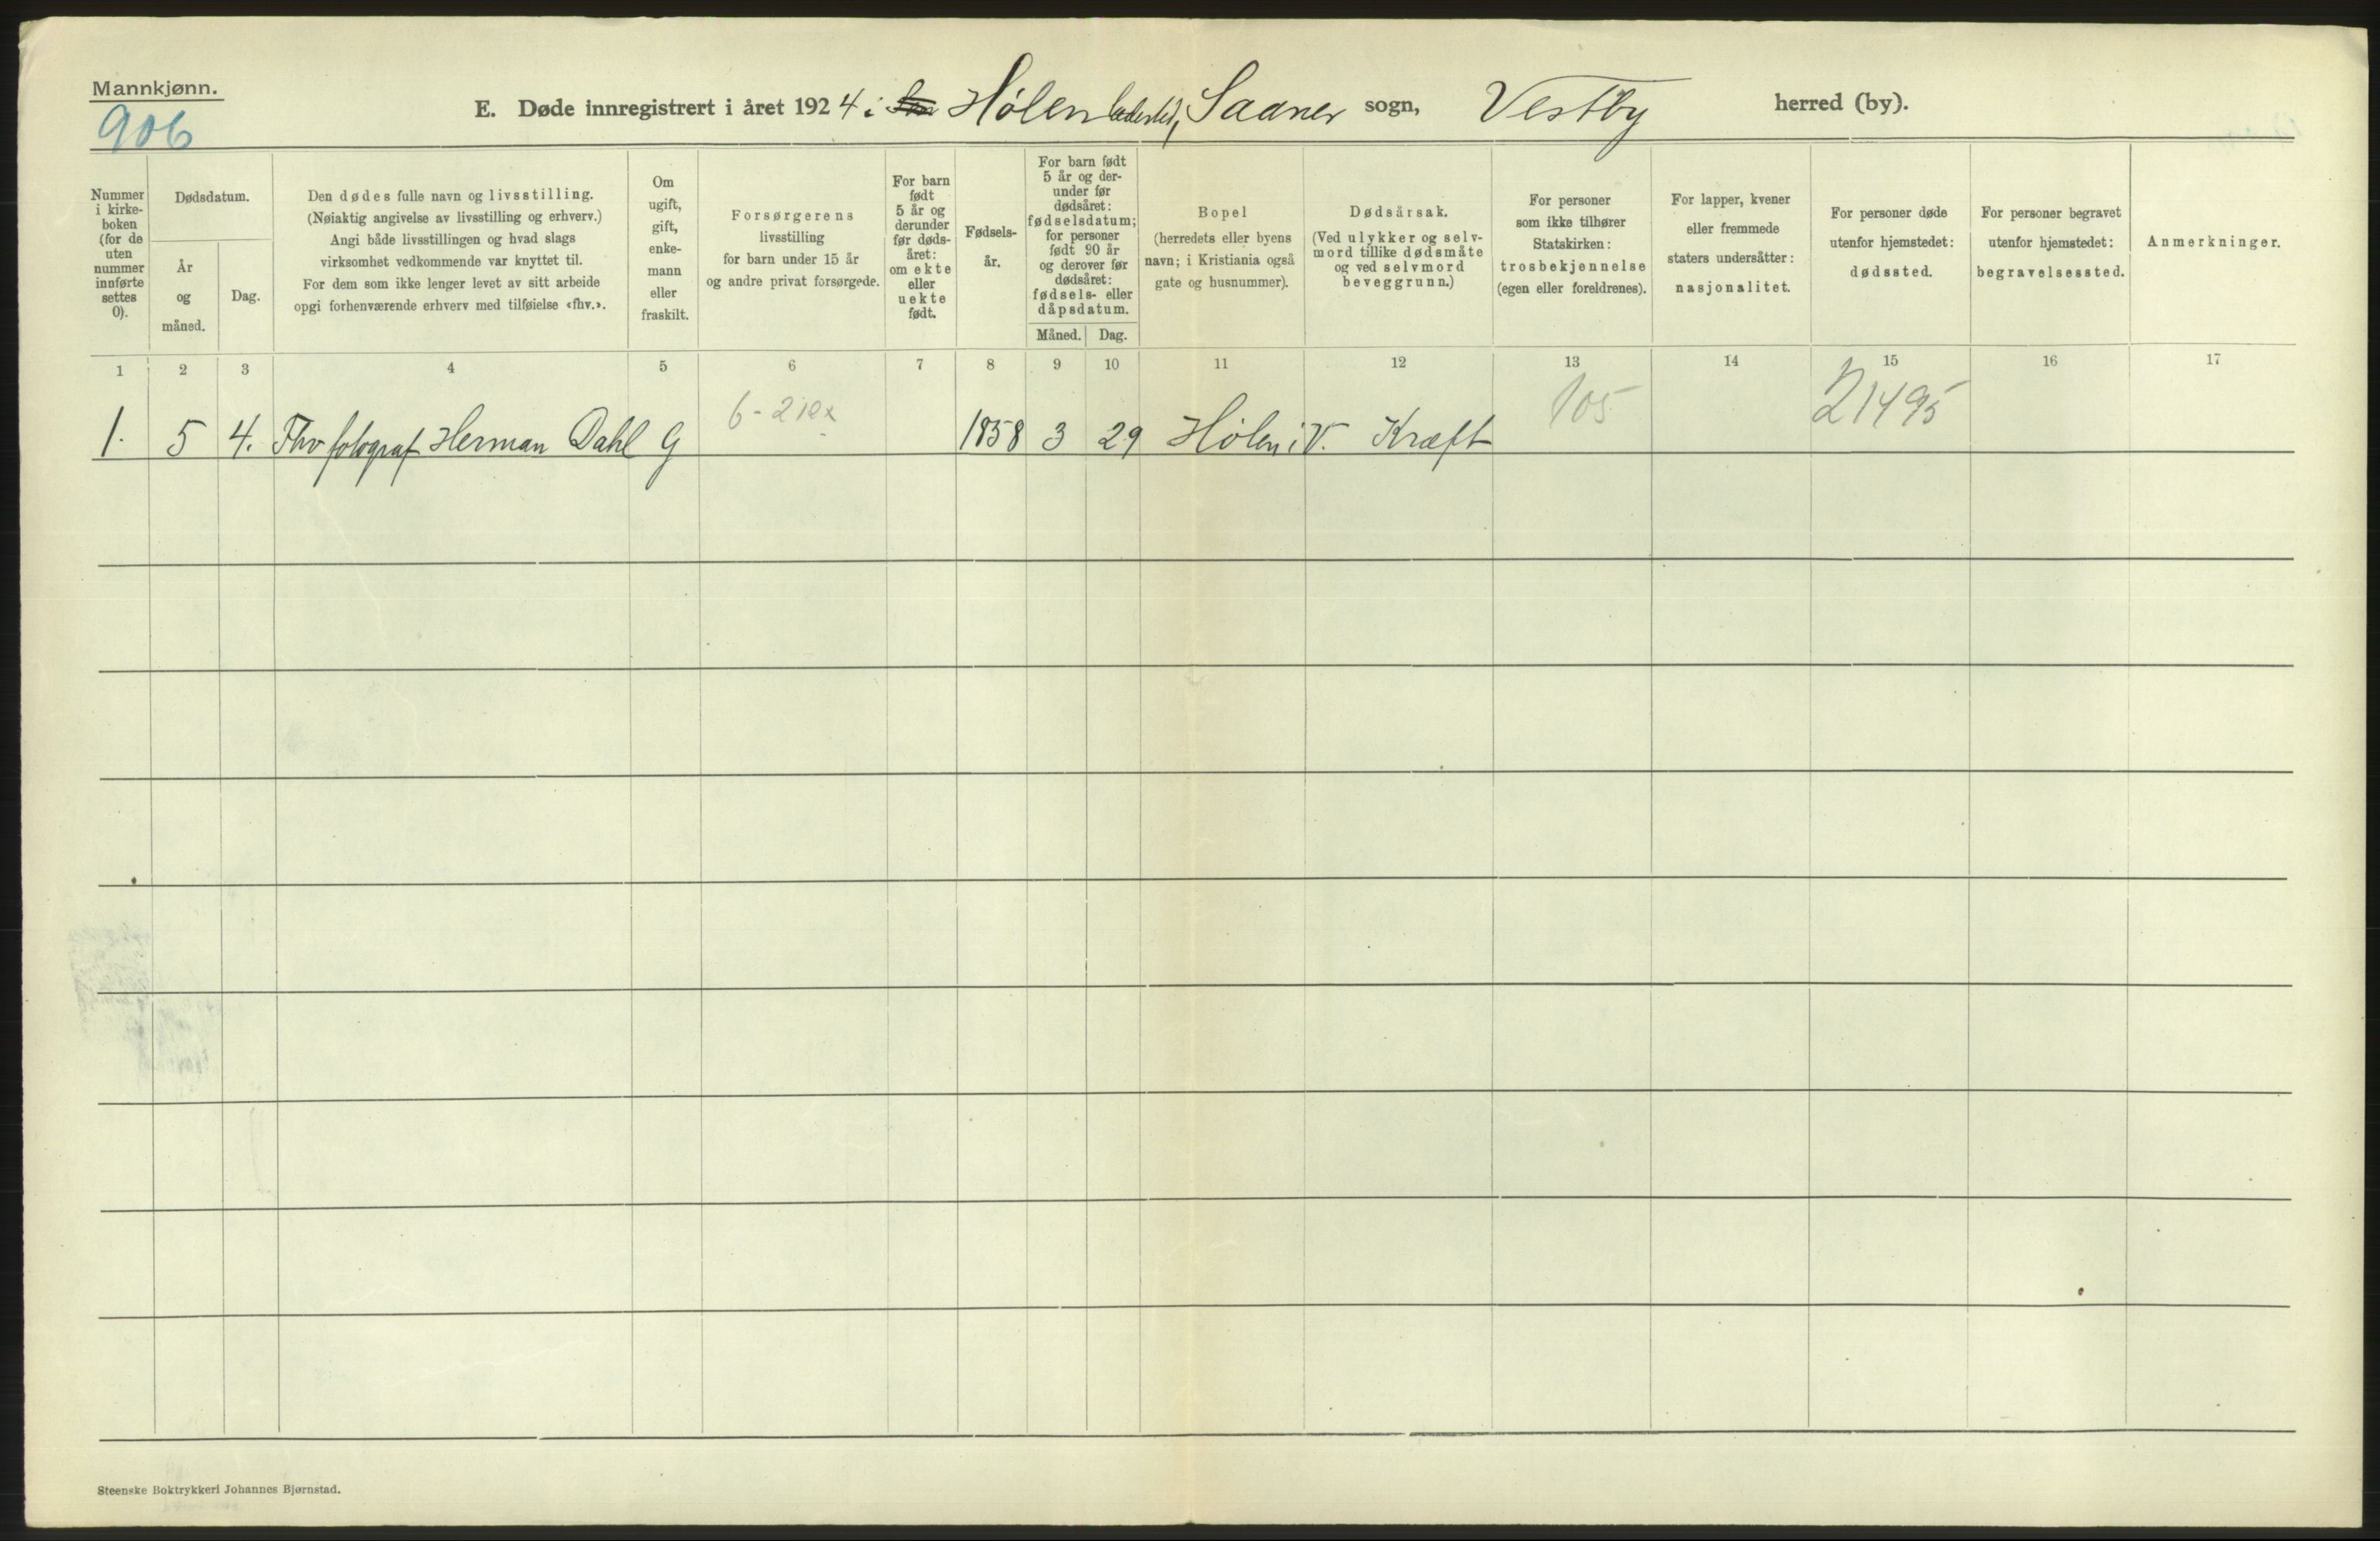 Mannkjønn.
906
E. Døde innregistrert i året 1924 i Hølen ladested, Saaner sogn, Vestby herred (by).
Nummer i kirke-boken (for de uten nummer innførte settes 0).
Dødsdatum.
År og måned.
Dag.
Den dødes fulle navn og livsstilling.
(Nøiaktig angivelse av livsstilling og erhverv.)
Angi både livsstillingen og hvad slags
virksomhet vedkommende var knyttet til.
For dem som ikke lenger levet av sitt arbeide
opgi forhenværende erhverv med tilføielse «fhv.».
Om ugift, gift, enke-mann eller fraskilt.
Forsørgerens
livsstilling
for barn under 15 år
og andre privat forsørgede.
For barn født 5 år og derunder før døds-året: om ekte eller uekte født.
Fødsels-år.
For barn født 5 år og der-under før dødsåret: fødselsdatum; for personer født 90 år og derover før dødsåret: fødsels- eller dåpsdatum.
Måned. Dag.
Bopel
(herredets eller byens
navn; i Kristiania også
gate og husnummer).
Dødsårsak.
(Ved ulykker og selv-
mord tillike dødsmåte
og ved selvmord
beveggrunn.)
For personer
som ikke tilhører
Statskirken:
trosbekjennelse
(egen eller foreldrenes).
For lapper, kvener
eller fremmede
staters undersåtter:
nasjonalitet.
For personer døde
utenfor hjemstedet:
dødssted.
For personer begravet
utenfor hjemstedet:
begravelsessted.
Anmerkninger.
1 2 3 4 5 6 7 8 9 10 11 12 13 14 15 16 17
105 21495
1. 5 4. Fhv fotograf Herman Dahl G 1858 3 29 Hølen i V. Kræft
Steenske Boktrykkeri Johannes Bjørnstad.